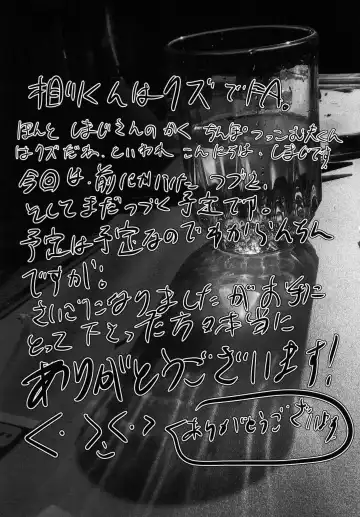 相づくんはクズでFA。
ほんと しまじえんの かく ちんぽつっこむ大くん
はクズだね、といわれ こんにちは、しまじです
今回は、前にかいた つづき、
そしてまだつづく予定です。
予定は予定なのでわからんちん
ですが。
さいごになりましたがお手に
とって下さった方々本当に
ありがとうございます!
ありがとうございます